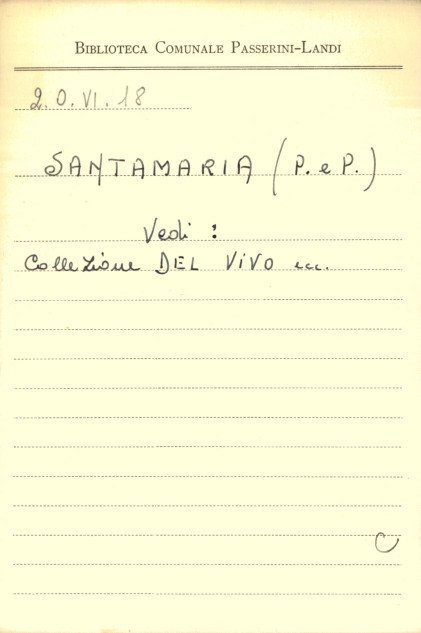 Biblioteca Comunale Passerini-Landi
2.O.VI.18
SANTAMARIA (P. e P.)
Vedi :
Collezione DEL VIVO ecc.
C